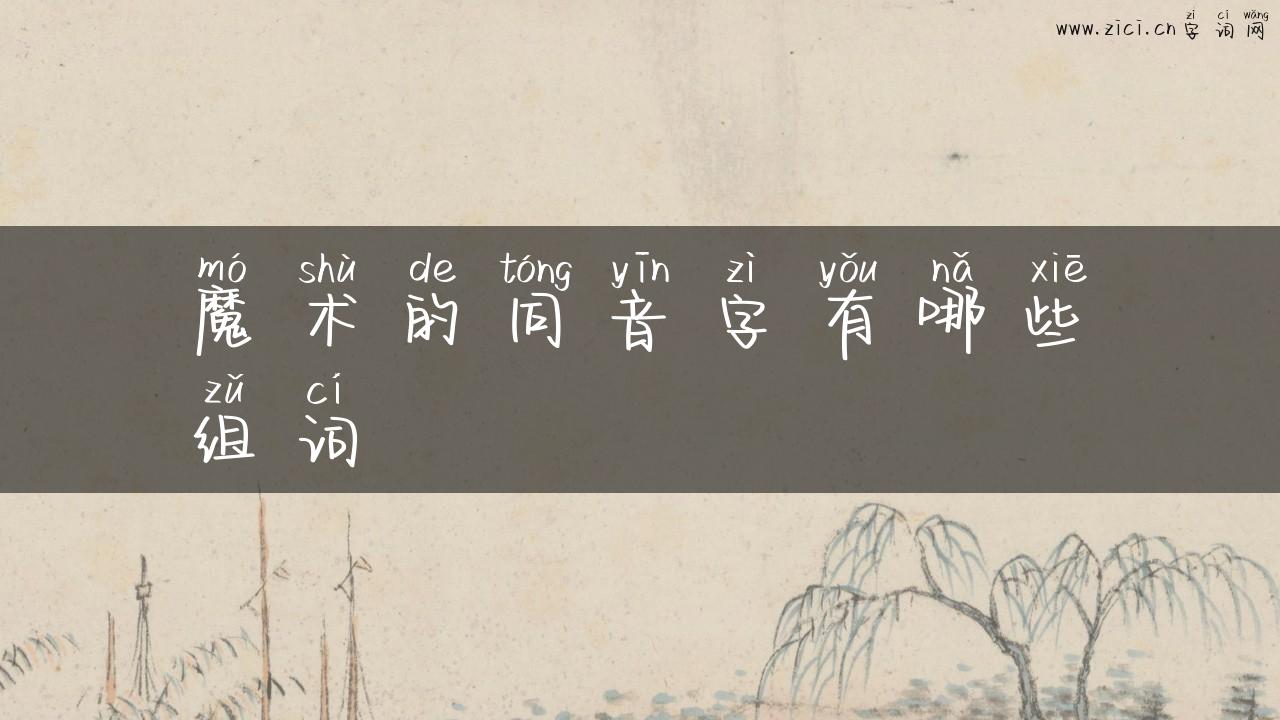 zì cí wǎng
www.zici.cn 字 词 网
mó shù de tóng yīn zì yǒu nǎ xiē
魔 术 的 同 音 字 有 哪 些
zǔ cí
组 词